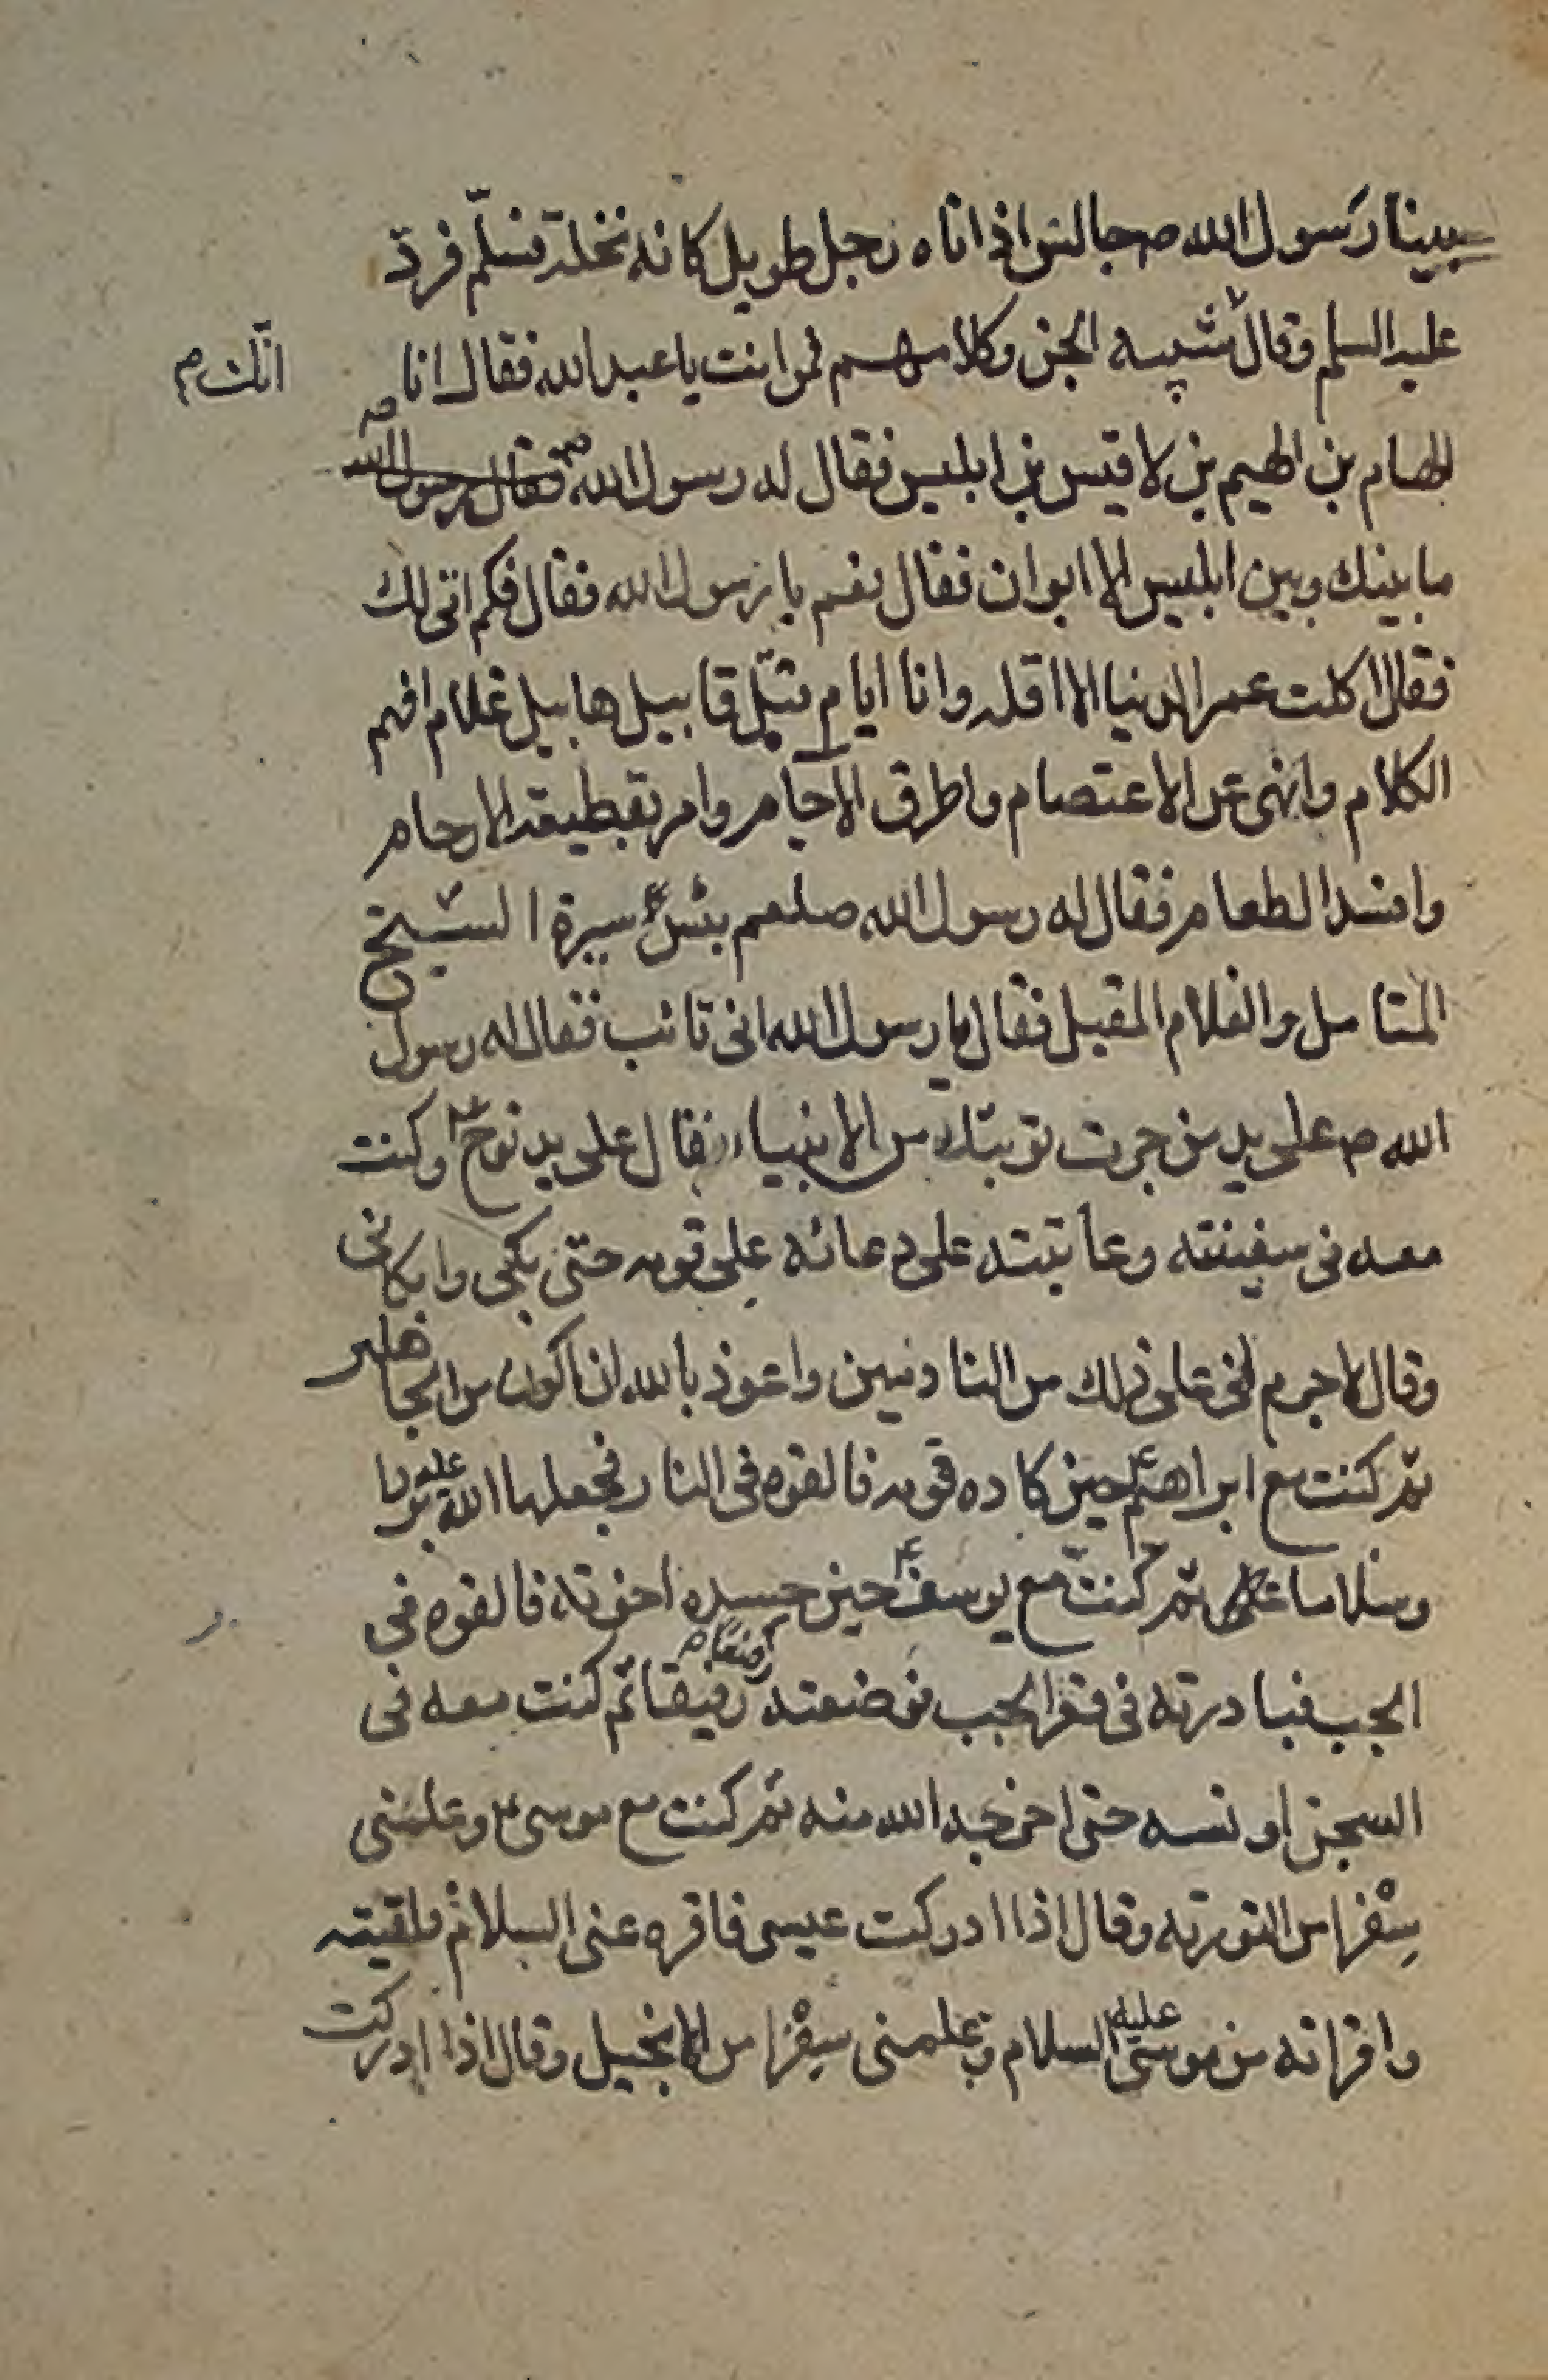 بينا رسول الله ص جالس اذ اتاه رجل طويل كانه نخلة فسلّم فردّ
عليه السلم وقال شبيه الجن وكلامهم لمن انت يا عبد الله فقال انا
انّك م
الهام بن الهيم بن لاقيس بن ابليس فقال له رسول الله ص فقال رسول الله ص
ما بينك وبين ابليس الا ابوان فقال نعم يا رسول الله فقال فكم اتى لك
فقال اكلت عمر الدنيا الا اقله وانا ايام قتل قابيل هابيل غلام افهم
الكلام وانهى عن الاعتصام واطرق الآجام وامر بقطيعة الارحام
وافسد الطعام فقال له رسول الله صلعم بئس سيرة الشيخ
المتامل والغلام المقبل فقال يا رسول الله انى تائب فقال له رسول
الله ص على يد من جرت توبتك من الانبياء فقال على يد نوح ع وكنت
معه فى سفينته وعاتبته على دعائه على قومه حتّى بكى وابكانى
وقال لا جرم انى على ذلك من النادمين واعوذ بالله ان اكون من الجاهلين
ثمّ كنت مع ابراهيم ع حين كاده قومه فالقوه فى النار فجعلها الله عليه بردا
وسلاما ثمّ كنت مع يوسف ع حين حسده اخوته فالقوه فى
الجب فبادرته فى قعر الجب فوضعته رفيقا ثم كنت معه فى
رفيقا م
السجن اونسه حتى اخرجه الله منه ثمّ كنت مع موسى ع وعلمنى
سِفْرا من التورية وقال اذا ادركت عيسى فاقره عنى السلام فلقيته
واقراته من موسى عليه السلام وعلمنى سِفْرا من الانجيل وقال اذا ادركت